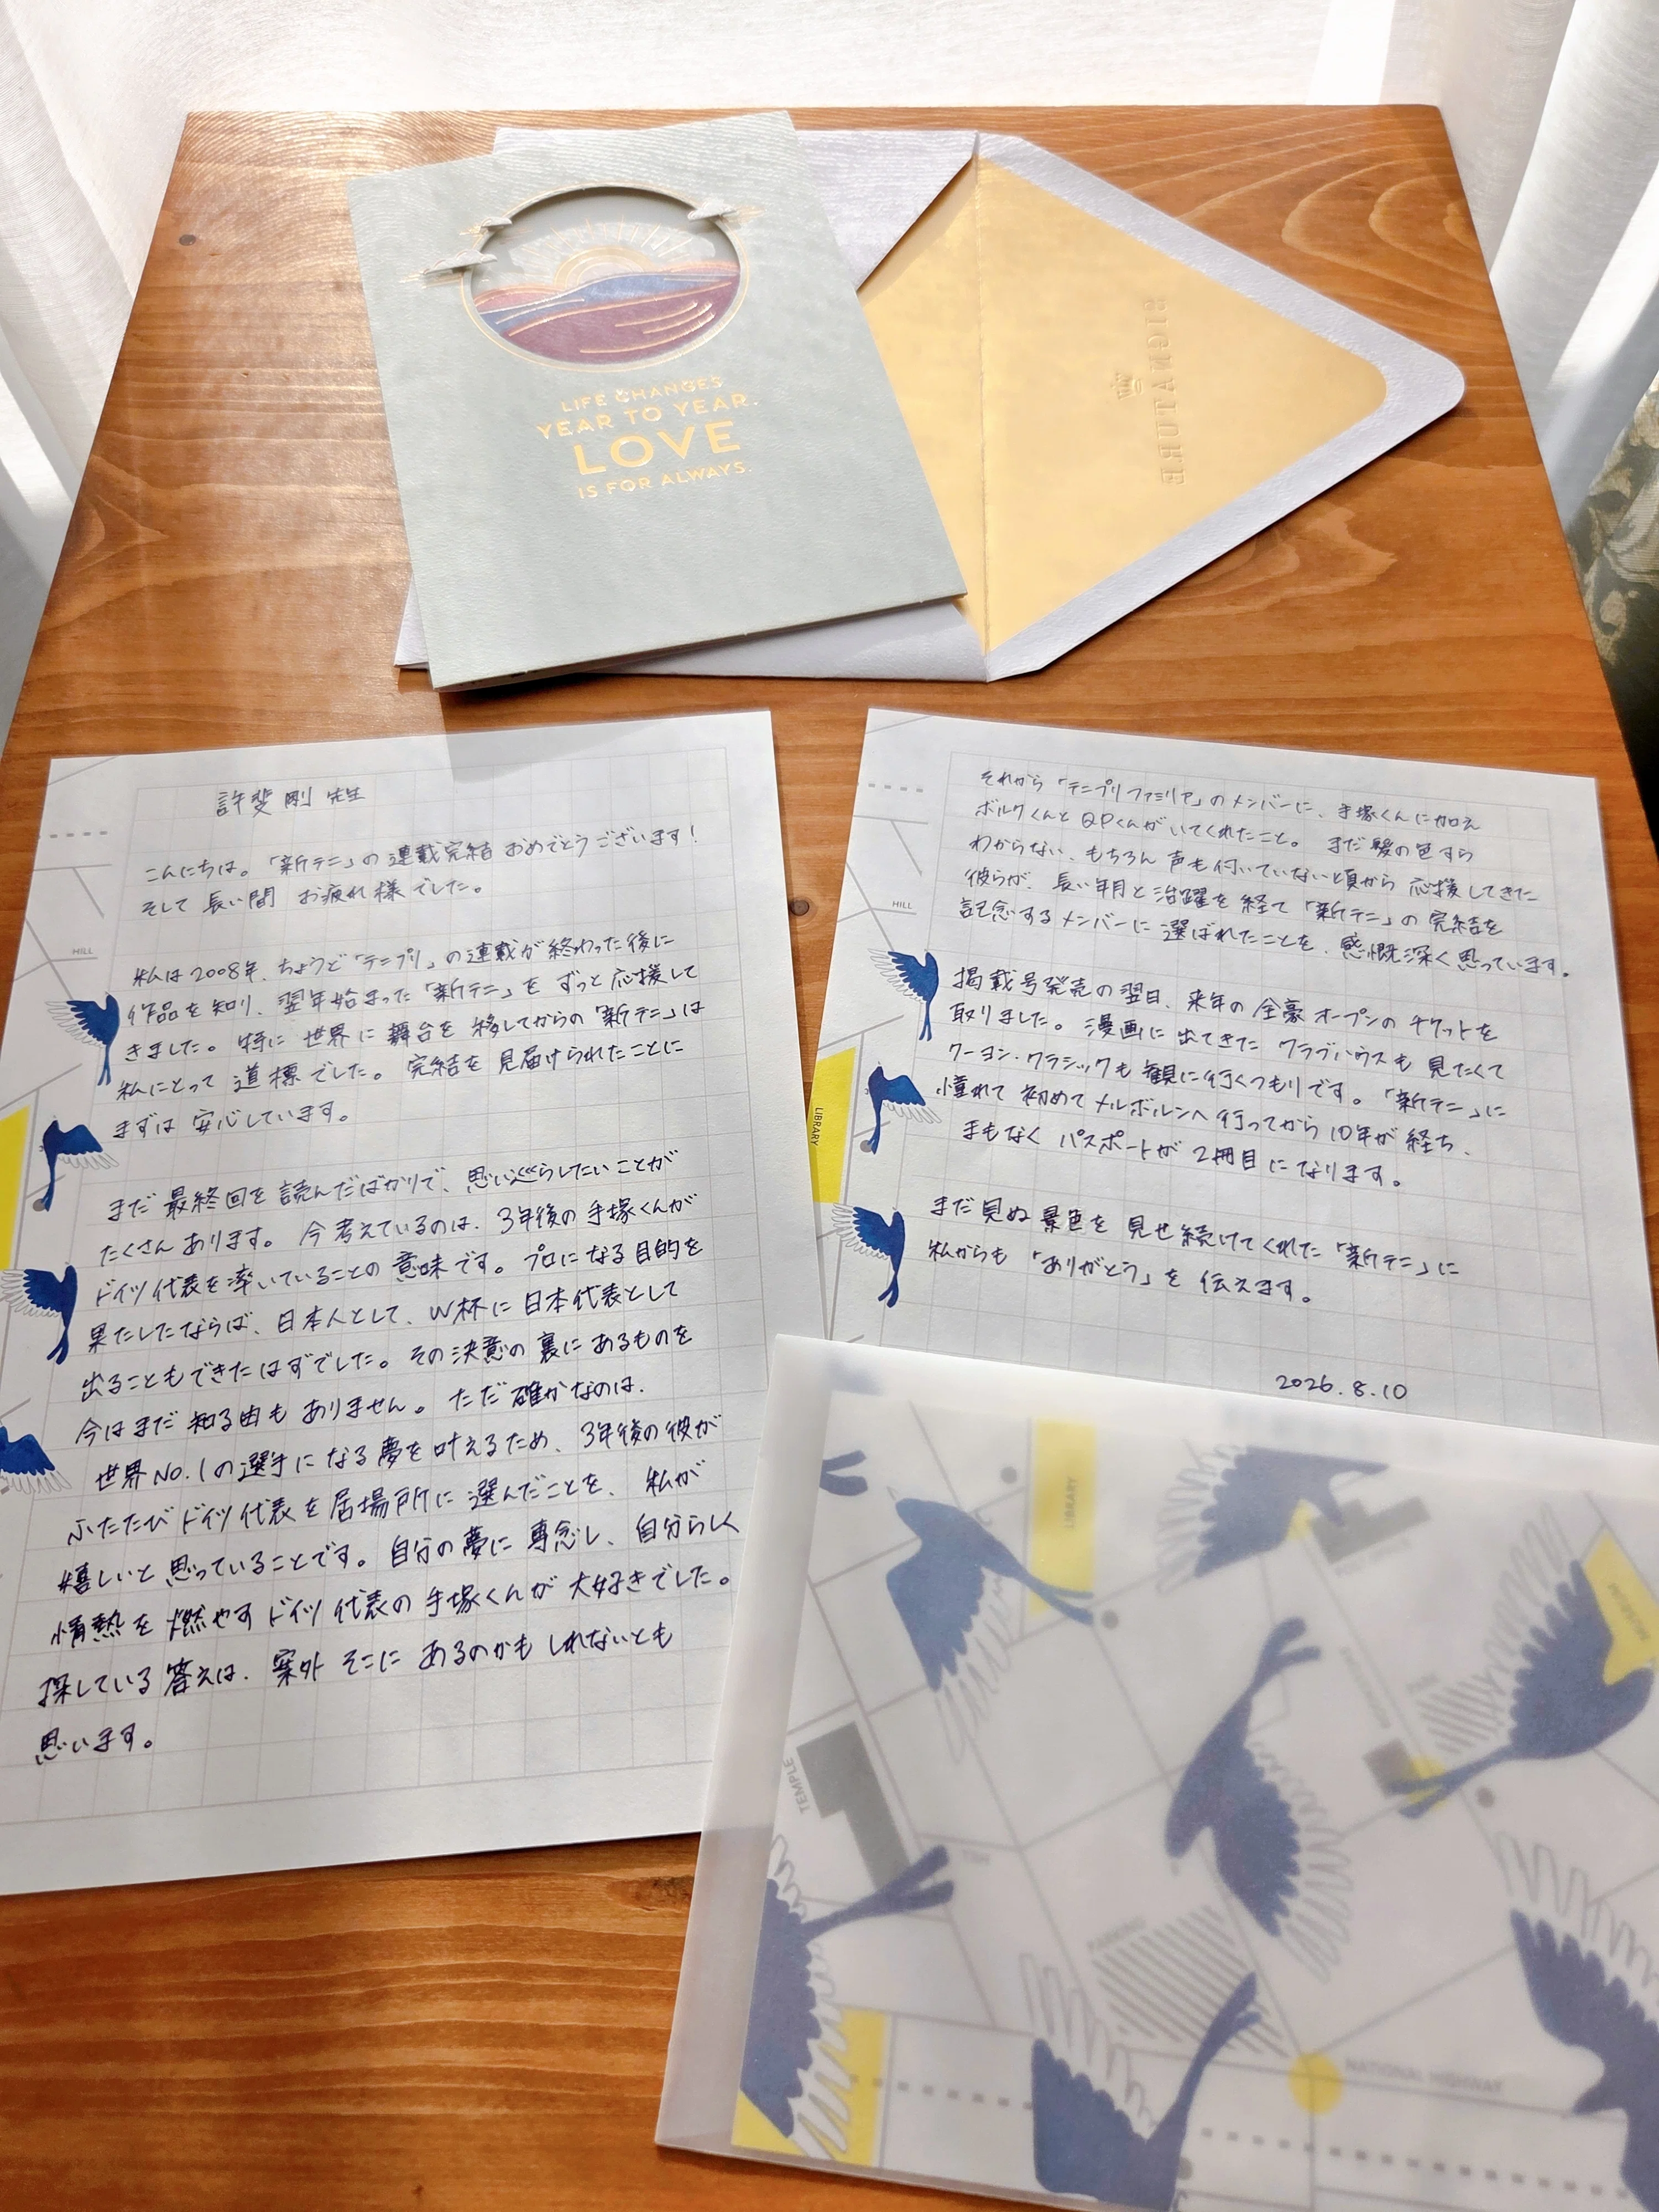 LIFE CHANGES
YEAR TO YEAR.
LOVE
IS FOR ALWAYS.
SIGNATURE
許斐 剛 先生
こんにちは。「新テニ」の連載完結 おめでとうございます！
そして 長い間 お疲れ様でした。
私は2008年、ちょうど「テニプリ」の連載が終わった後に
作品を知り、翌年始まった「新テニ」を ずっと応援して
きました。特に 世界に 舞台を 移してからの「新テニ」は
私にとって 道標でした。完結を 見届けられたことに
まずは 安心しています。
まだ 最終回を 読んだばかりで、思い巡らしたいことが
たくさん あります。今 考えているのは、3年後の 手塚くんが
ドイツ代表を率いていることの 意味です。プロになる目的を
果たしたならば、日本人として、W杯に 日本代表として
出ることもできたはずでした。その決意の 裏にあるものを
今はまだ 知る由も ありません。ただ 確かなのは、
世界No.1の選手に なる夢を叶えるため、3年後の彼が
ふたたび ドイツ代表を 居場所に 選んだことを、私が
嬉しいと 思っていることです。自分の夢に 専念し、自分らしく
情熱を 燃やす ドイツ代表の 手塚くんが 大好きでした。
探している 答えは、案外 そこに あるのかも しれないとも
思います。
HILL
それから「テニプリファミリア」のメンバーに、手塚くんに加え
ボルクくんと QPくんが いてくれたこと。まだ 髪の色すら
わからない、もちろん 声も付いていない頃から 応援してきた
彼らが、長い年月と 活躍を 経て「新テニ」の 完結を
記念するメンバーに 選ばれたことを、感慨深く思っています。
掲載号発売の翌日、来年の 全豪オープンの チケットを
取りました。漫画に 出てきた クラブハウスも 見たくて
クーヨン・クラシックも 観に行くつもりです。「新テニ」に
憧れて 初めて メルボルンへ 行ってから 10年が 経ち、
まもなく パスポートが 2冊目 になります。
まだ見ぬ 景色を 見せ続けてくれた「新テニ」に
私からも「ありがとう」を 伝えます。
2026.8.10
HILL
LIBRARY
LIBRARY
TEMPLE
PARKING
NATIONAL HIGHWAY